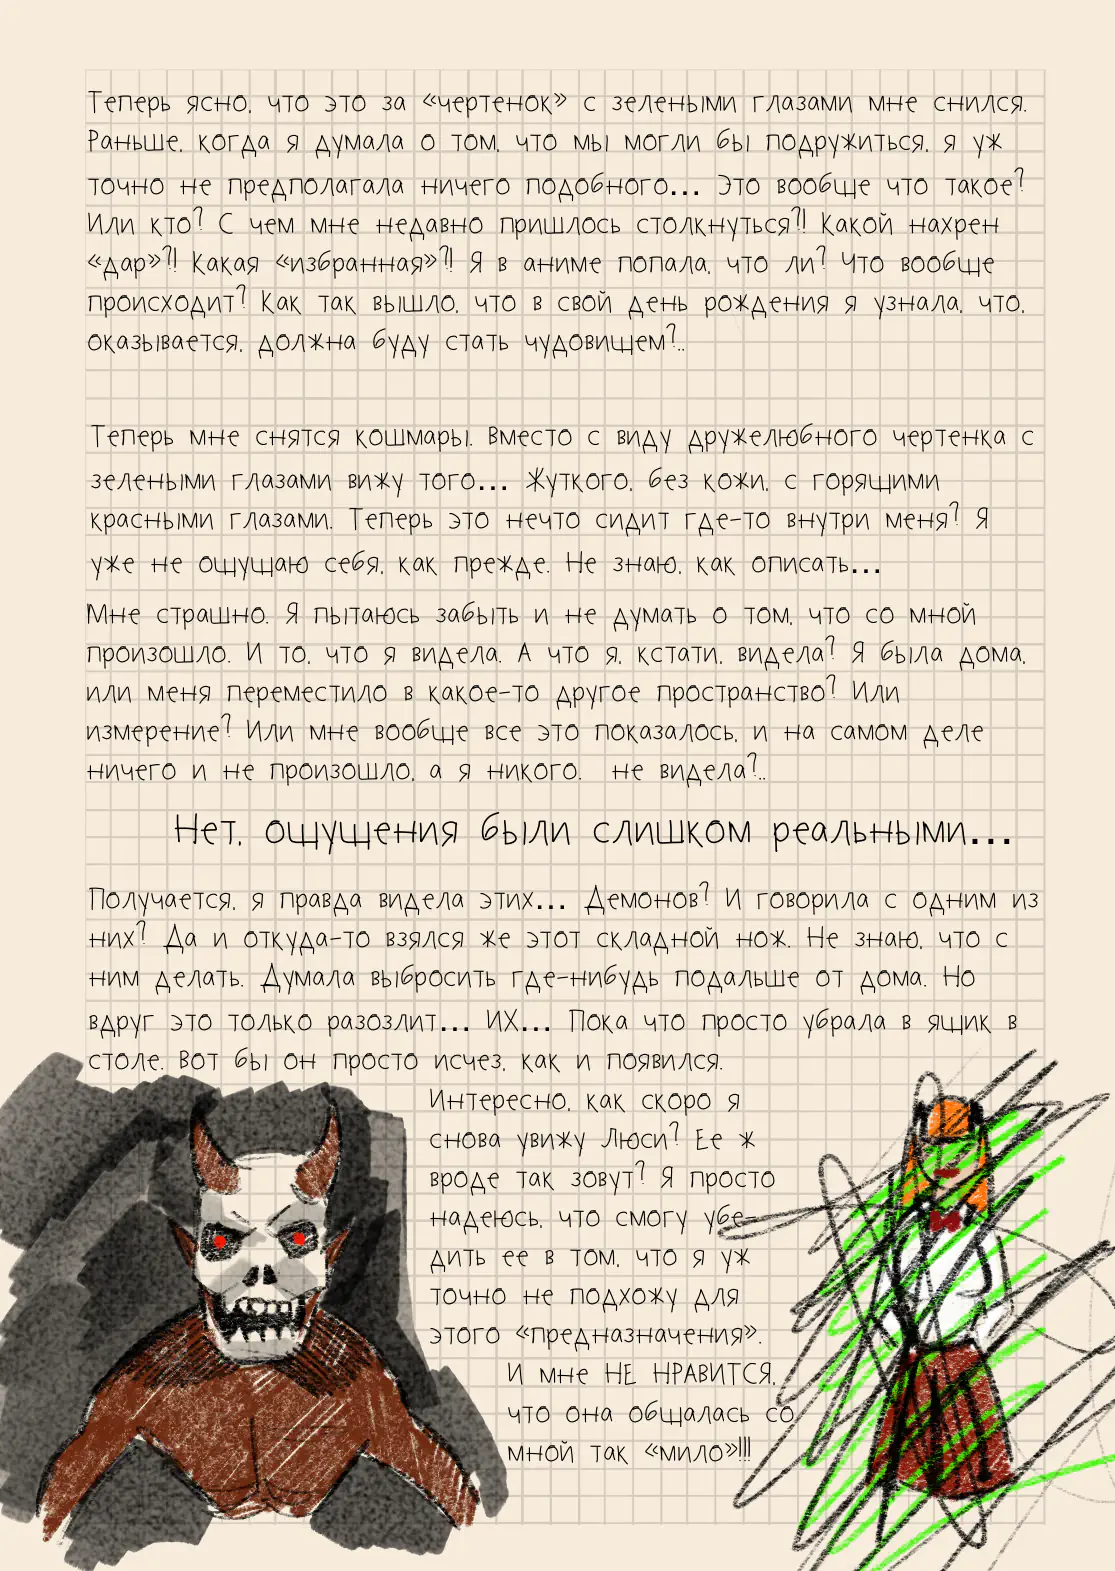 Теперь ясно, что это за «чертенок» с зелеными глазами мне снился.
Раньше, когда я думала о том, что мы могли бы подружиться, я уж
точно не предполагала ничего подобного... Это вообще что такое?
Или кто? С чем мне недавно пришлось столкнуться?! Какой нахрен
«дар»?! Какая «избранная»?! Я в аниме попала, что ли? Что вообще
происходит? Как так вышло, что в свой день рождения я узнала, что,
оказывается, должна буду стать чудовищем?..
Теперь мне снятся кошмары. Вместо с виду дружелюбного чертенка с
зелеными глазами вижу того... Жуткого, без кожи, с горящими
красными глазами. Теперь это нечто сидит где-то внутри меня? Я
уже не ощущаю себя, как прежде. Не знаю, как описать...
Мне страшно. Я пытаюсь забыть и не думать о том, что со мной
произошло. И то, что я видела. А что я, кстати, видела? Я была дома,
или меня переместило в какое-то другое пространство? Или
измерение? Или мне вообще все это показалось, и на самом деле
ничего и не произошло, а я никого.  не видела?..
Нет, ощущения были слишком реальными...
Получается, я правда видела этих... Демонов? И говорила с одним из
них? Да и откуда-то взялся же этот складной нож. Не знаю, что с
ним делать. Думала выбросить где-нибудь подальше от дома. Но
вдруг это только разозлит... ИХ... Пока что просто убрала в ящик в
столе. Вот бы он просто исчез, как и появился.
Интересно, как скоро я
снова увижу Люси? Ее ж
вроде так зовут? Я просто
надеюсь, что смогу убе-
дить ее в том, что я уж
точно не подхожу для
этого «предназначения».
И мне НЕ НРАВИТСЯ,
что она общалась со
мной так «мило»!!!